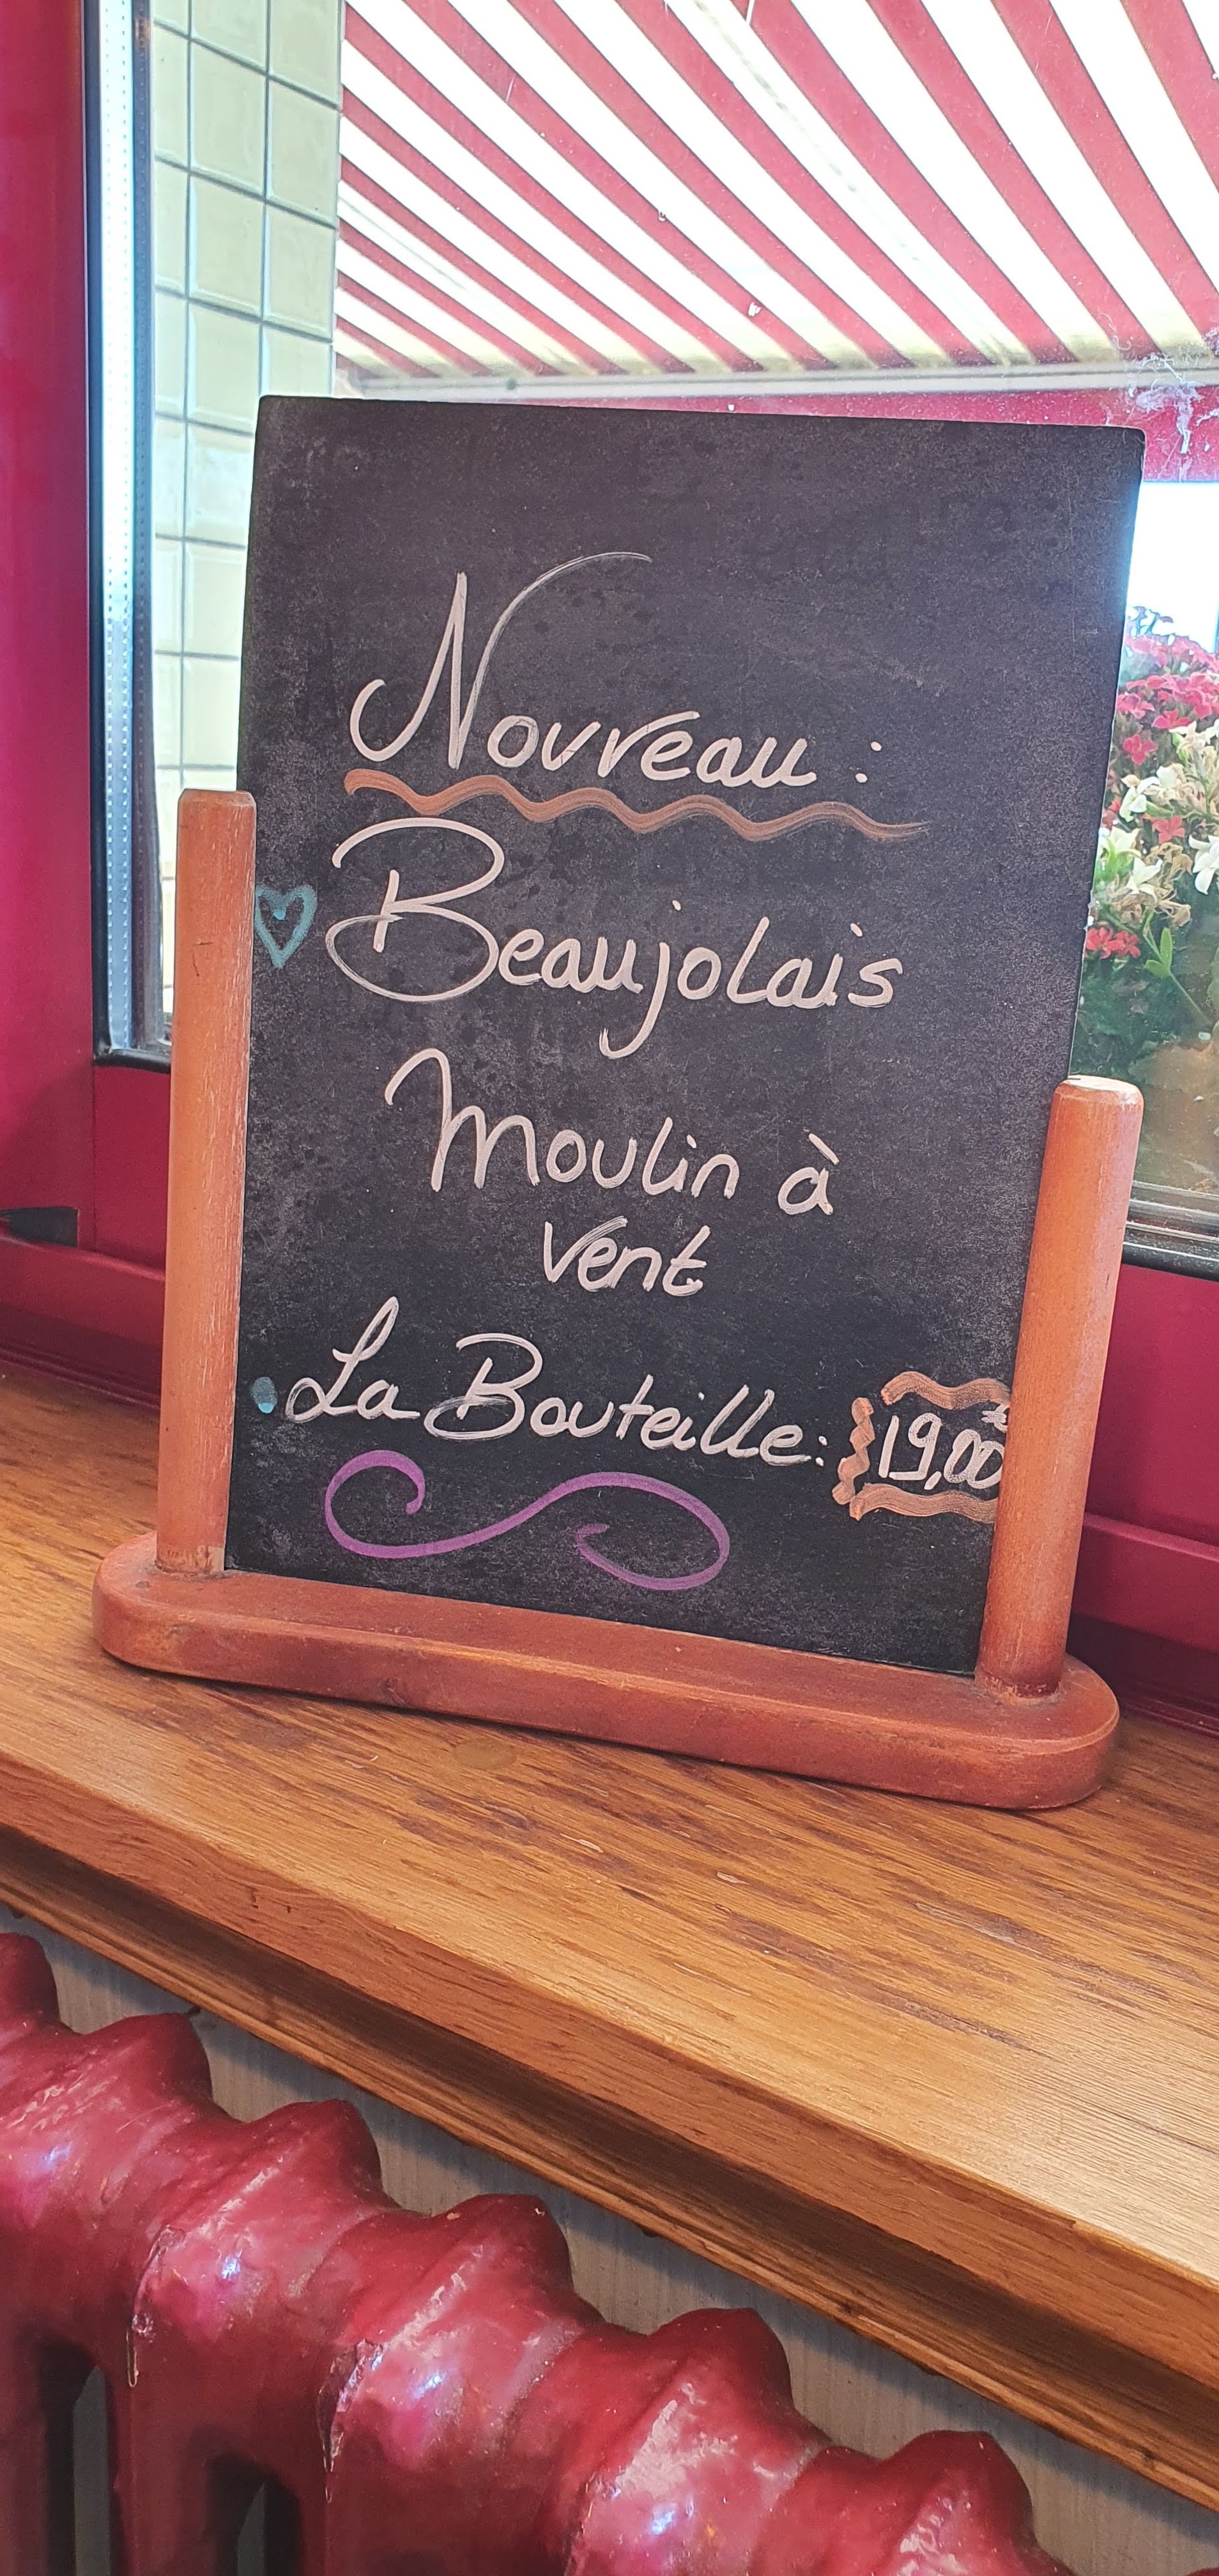 Nouveau :
Beaujolais
Moulin à
vent
La Bouteille : 19,00€